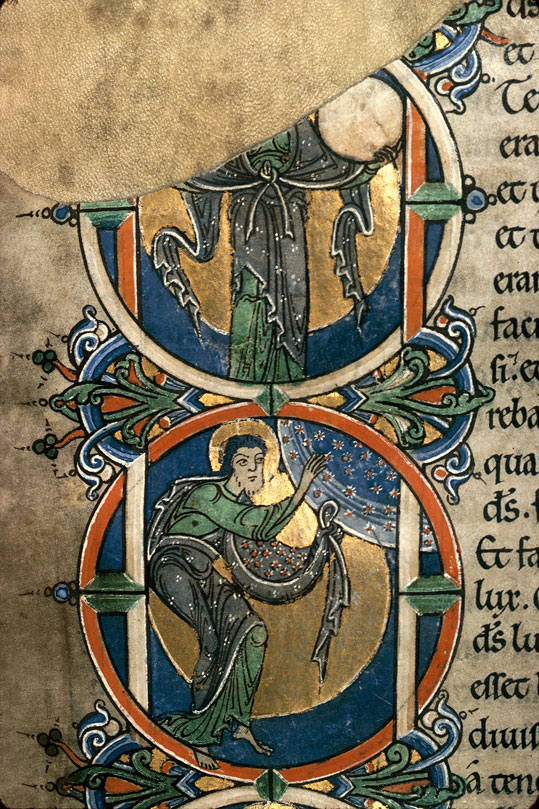 ds
et
Te
era
et
et
eran
faci
si. et
reba
qua
d̄s. f
Et fa
lux.
d̄s lu
esset
diuis
a ten